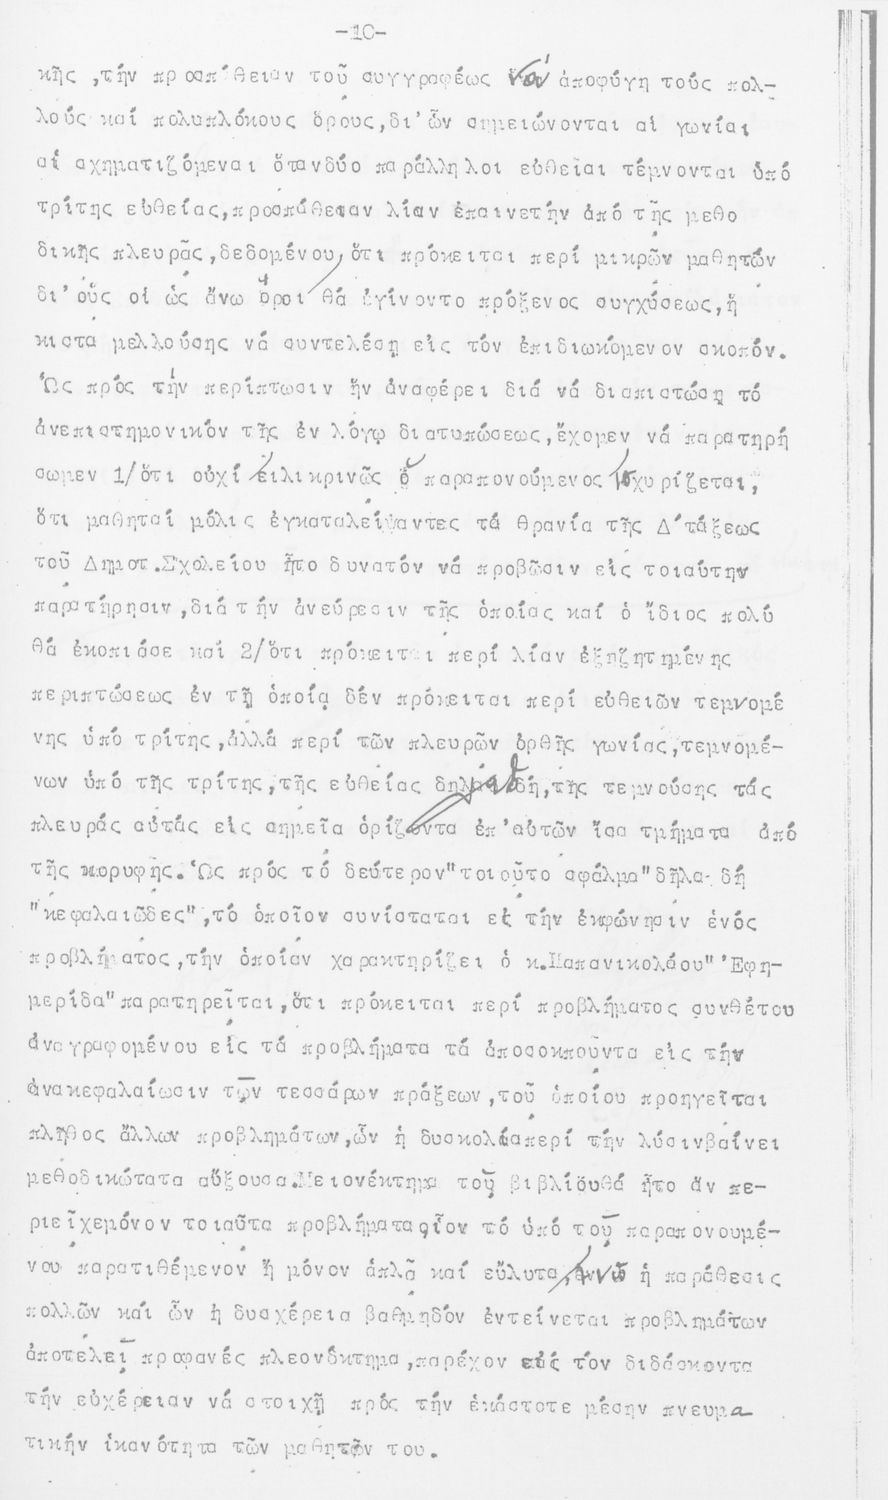 -10-
κῆς ,τήν προσπάθειαν τοῦ συγγραφέως νά ἀποφύγη τούς πολ-
λούς καί πολυπλόκους ὅρους,δι'ὧν σημειώνονται αἱ γωνίαι
αἱ σχηματιζόμεναι ὅτανδύο παράλληλοι εὐθεῖαι τέμνονται ὑπό
τρίτης εὐθείας,προσπάθειαν λίαν ἐπαινετήν ἀπό τῆς μεθο
δικῆς πλευρᾶς,δεδομένου ὅτι πρόκειται περί μικρῶν μαθητῶν
δι'οὕς οἱ ὡς ἄνω ὅροι θά ἐγίνοντο πρόξενος συγχύσεως,ἥ
κιστα μελλούσης νά συντελέση εἰς τόν ἐπιδιωκόμενον σκοπόν.
Ὡς πρός τήν περίπτωσιν ἥν ἀναφέρει διά νά διαπιστώση τό
ἀνεπιστημονικόν τῆς ἐν λόγῳ διατυπώσεως,ἔχομεν νά παρατηρή
σωμεν 1/ὅτι οὐχί εἰλικρινῶς ὁ παραπονούμενος ἰσχυρίζεται,
ὅτι μαθηταί μόλις ἐγκαταλείψαντες τά θρανία τῆς Δ'τάξεως
τοῦ Δημοτ.Σχολείου ἦτο δυνατόν νά προβῶσιν εἰς τοιαύτην
παρατήρησιν,διά τήν ἀνεύρεσιν τῆς ὁποίας καί ὁ ἴδιος πολύ
θά ἐκοπίασε καί 2/ὅτι πρόκειται περί λίαν ἐξηζητημένης
περιπτώσεως ἐν τῇ ὁποίᾳ δέν πρόκειται περί εὐθειῶν τεμνομέ
νης ὑπό τρίτης,ἀλλά περί τῶν πλευρῶν ὀρθῆς γωνίας,τεμνομέ-
νων ὑπό τῆς τρίτης,τῆς εὐθείας δηλαδή,τῆς τεμνούσης τάς
πλευράς αὐτάς εἰς σημεῖα ὁρίζοντα ἐπ'αὐτῶν ἴσα τμήματα ἀπό
τῆς κορυφῆς.Ὡς πρός τό δεύτερον"τοιοῦτο σφάλμα"δῆλα-δή
"κεφαλαιῶδες",τό ὁποῖον συνίσταται εἰς τήν ἐκφώνησιν ἑνός
προβλήματος,τήν ὁποίαν χαρακτηρίζει ὁ κ.Παπανικολάου"Ἐφη-
μερίδα"παρατηρεῖται,ὅτι πρόκειται περί προβλήματος συνθέτου
ἀναγραφομένου εἰς τά προβλήματα τά ἀποσοκποῦντα εἰς τήν
ἀνακεφαλαίωσιν τῶν τεσσάρων πράξεων,τοῦ ὁποίου προηγεῖται
πλῆθος ἄλλων προβλημάτων,ὧν ἡ δυσκολίαπερί τήν λύσινβαίνει
μεθοδικώτατα αὔξουσα.Μειονέκτημα τοῦ βιβλίουθά ἦτο ἄν πε-
ριεῖχεμόνον τοιαῦτα προβλήματαοἷον τό ὑπό τοῦ παραπονουμέ-
νου παρατιθέμενον ἤ μόνον ἁπλᾶ καί εὔλυτα,ἐνῶ ἡ παράθεσις
πολλῶν καί ὧν ἡ δυσχέρεια βαθμηδόν ἐντείνεται προβλημάτων
ἀποτελεῖ προφανές πλεονέκτημα,παρέχον εἰς τόν διδάσκοντα
τήν εὐχέρειαν νά στοιχῇ πρός τήν ἑκάστοτε μέσην πνευμα-
τικήν ἱκανότητα τῶν μαθητῶν του.